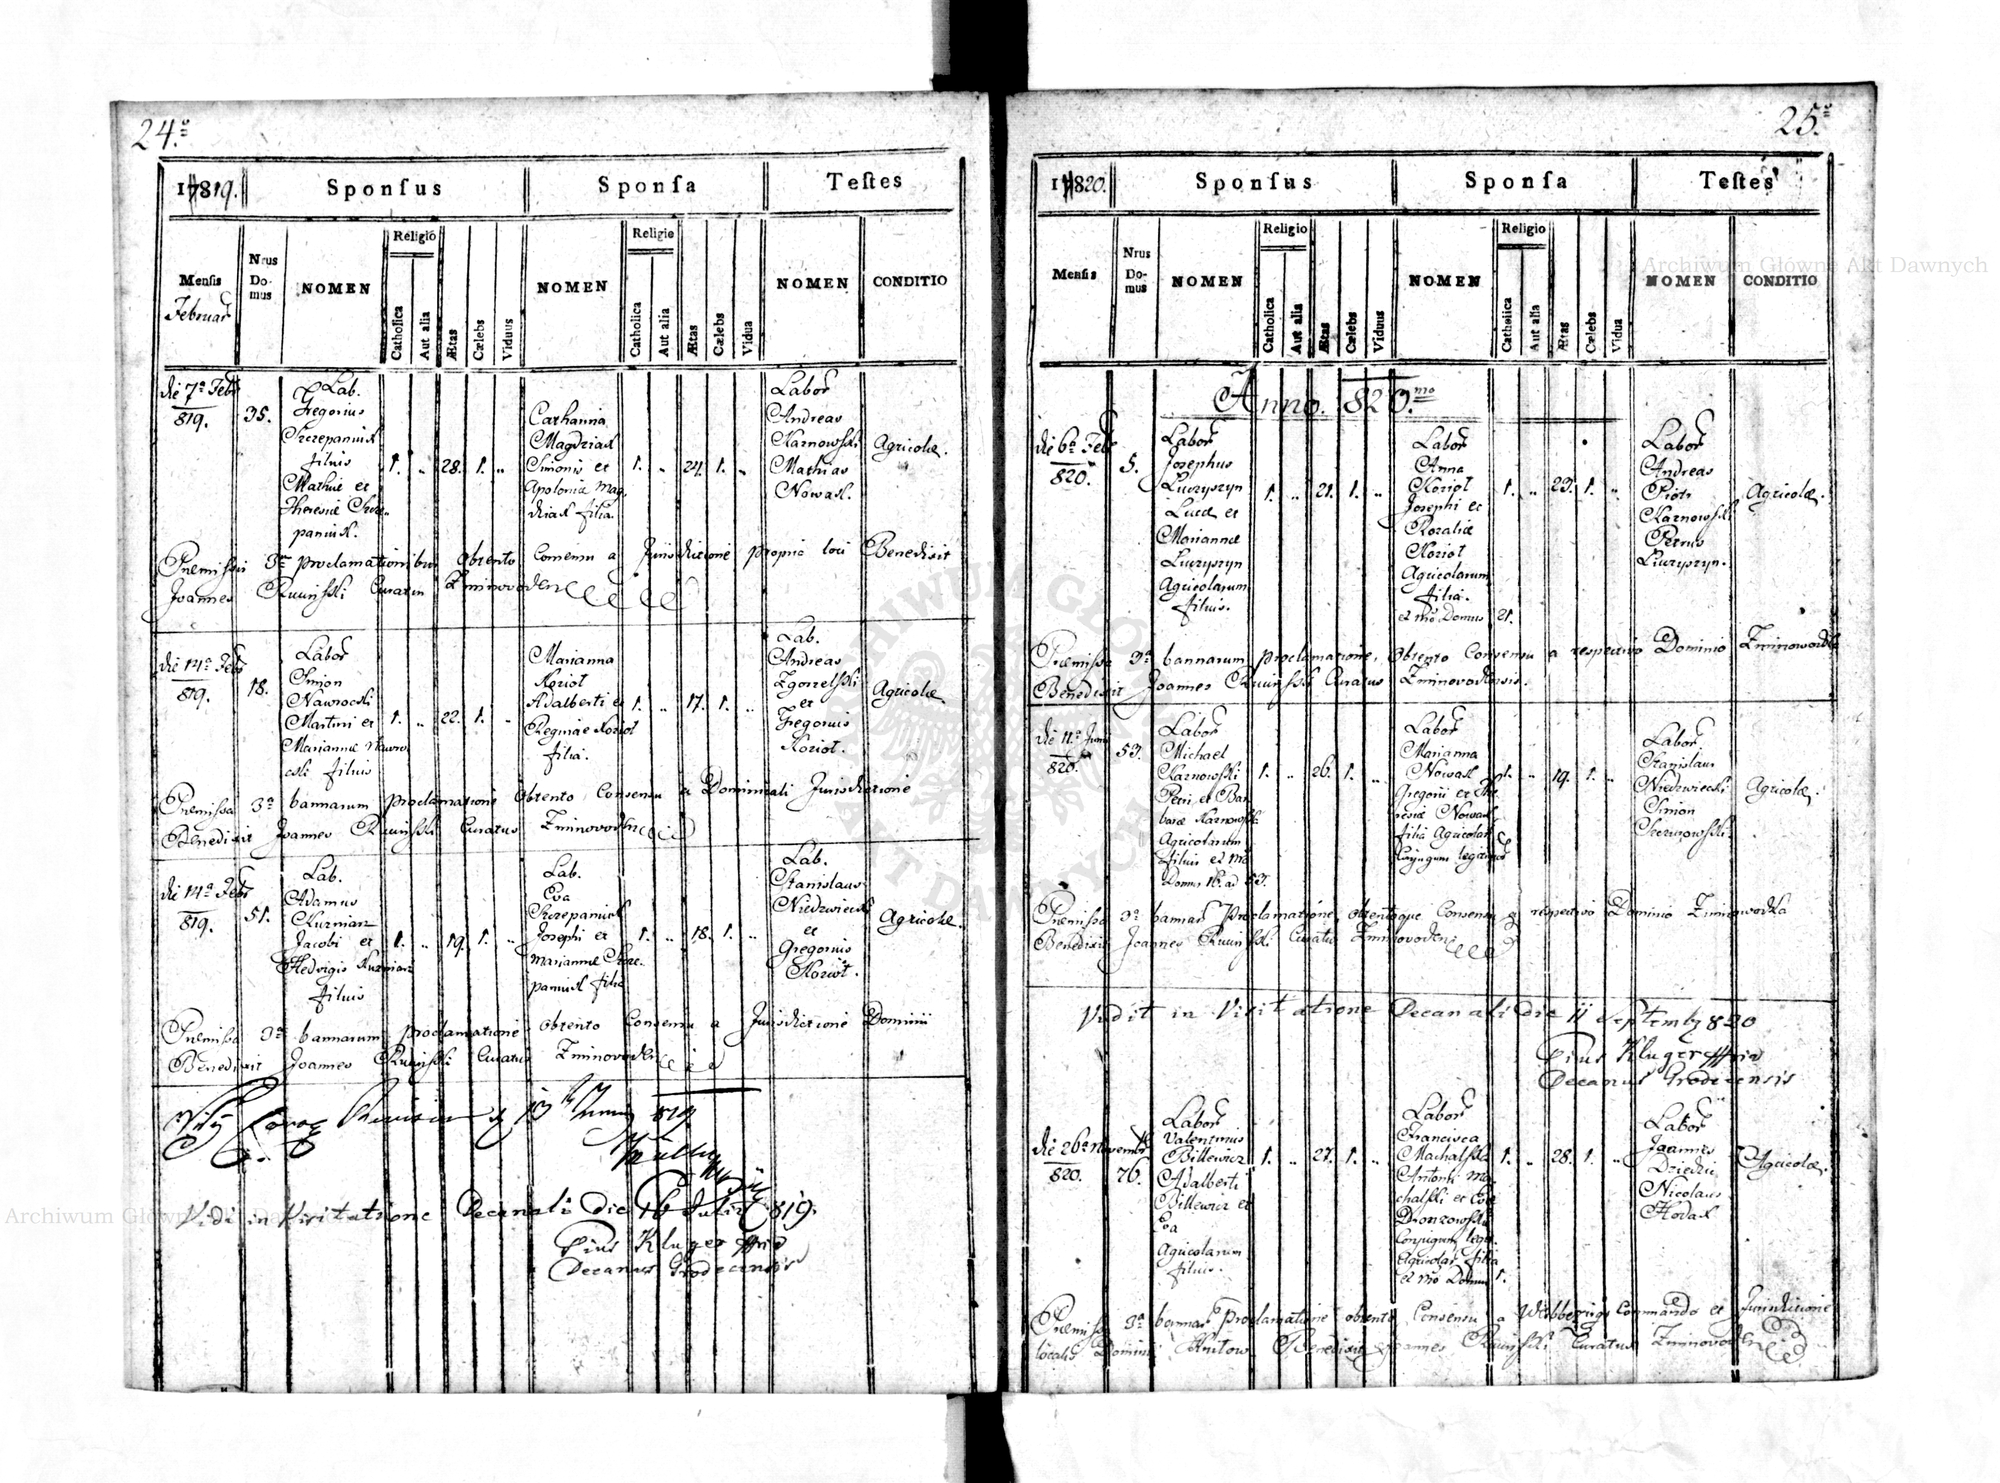 24.º
17819. Sponſus Sponſa Teſtes
Menſis Nrus Domus NOMEN Religio Catholica Aut alia Ætas Cælebs Viduus NOMEN Religio Catholica Aut alia Ætas Cælebs Vidua NOMEN CONDITIO
Februar
die 7ª Febr
819.
35.
Lab.
Gregorius
Szczepaniuk
filius
Mathiæ et
Theresiæ Szcze-
paniuk.
1. „ 28. 1. „
Catharina
Magdziak
Simonis et
Apolonia Mag
dziak filia.
1. „ 24. 1. „
Labor
Andreas
Karnowski
Mathias
Nowak.
Agricolæ.
Præmissis 3m proclamationibus obtento Consensu a Jurisdictione propria loci Benedixit
Joannes Curatus Zminovoden
die 14ª Febr
819.
18.
Labor
Simon
Nawrocki
Martini et
Mariannæ Nawro
cki filius
1. „ 22. 1. „
Marianna
Koziol
Adalberti et
Reginæ Koziol
filia.
1. „ 17. 1. „
Lab.
Andreas
Zgorzelski
et
Gregorius
Koziol.
Agricolæ
Præmissa 3ª bannarum proclamatione Obtento Consensu a Dominicali Jurisdictione
Benedixit Joannes Curatus Zminovoden
die 14ª Febr
819.
51.
Lab.
Adamus
Kuzmiar
Jacobi et
Hedvigis Kuzmiar
filius
1. „ 19. 1. „
Lab.
Eva
Szczepaniuk
Josephi et
Mariannæ Szcze-
paniuk filia
1. „ 18. 1. „
Lab.
Stanislaus
Niedzwiecki
et
Gregorius
Koziol.
Agricolæ.
Præmissa 3ª bannarum proclamatione obtento Consensu a Jurisdictione Dominii
Benedixit Joannes Curatus Zminovoden
819
Vidi in Visitatione Decanali die 16 Julii 819.
Pius Kluger
Decanus Grodecensis
25.º
17820. Sponſus Sponſa Teſtes
Menſis Nrus Domus NOMEN Religio Catholica Aut alia Ætas Cælebs Viduus NOMEN Religio Catholica Aut alia Ætas Cælebs Vidua NOMEN CONDITIO
Anno. 820.mo
die 6ª Febr
820.
5.
Labor
Josephus
Luczyszyn
Lucæ et
Mariannæ
Luczyszyn
Agricolarum
filius.
1. „ 21. 1. „
Labor
Anna
Koziol
Josephi et
Rozaliæ
Koziol
Agricolarum
filia.
et nro Domus 21.
1. „ 23. 1. „
Labor
Andreas
Piotr
Karnowski
Petrus
Luczyszyn.
Agricolæ.
Præmissa 3ª bannarum proclamatione, Obtento Consensu a respectivo Dominio Zminowodka
Benedixit Joannes Curatus Zminovodensis.
die 11ª Juni
820.
53.
Labor
Michael
Karnowski
Petri et Bar
baræ Karnowski
Agricolarum
filius et nro
Domus 16. ad 53.
1. „ 26. 1. „
Labor
Marianna
Nowak
Gregorii et The
resiæ Nowak
filia Agricolar
Conjugum legitimor
1. „ 19. 1. „
Labor
Stanislaus
Niedzwiecki
Simon
Agricolæ.
Præmissa 3ª bannar proclamatione, obtentoque Consensu a respectivo Dominio Zminowodka
Benedixit Joannes Curatus Zminovoden
Vidit in Visitatione Decanali die 11 Septembr 820
Pius Kluger
Decanus Grodecensis
die 26ª Novembr
820.
76.
Labor
Valentinus
Billewicz
Adalberti
Billewicz et
Eva
Agricolarum
filius.
1. „ 27. 1. „
Labor
Francisca
Machalska
Antonii Ma
chalski et Evæ
Dronzowski
Conjugum legit.
Agricolar filia
et nro Domus 1.
1. „ 28. 1. „
Labor
Joannes
Dziedzic
Nicolaus
Hodak
Agricolæ.
Præmissa 3ª bannar proclamatione obtento Consensu a Commando et Jurisdictione
localis Dominii Benedixit Joannes Curatus Zminovoden
Archiwum Główne Akt Dawnych
Archiwum Główne Akt Dawnych
ARCHIWUM GŁÓWNE AKT DAWNYCH